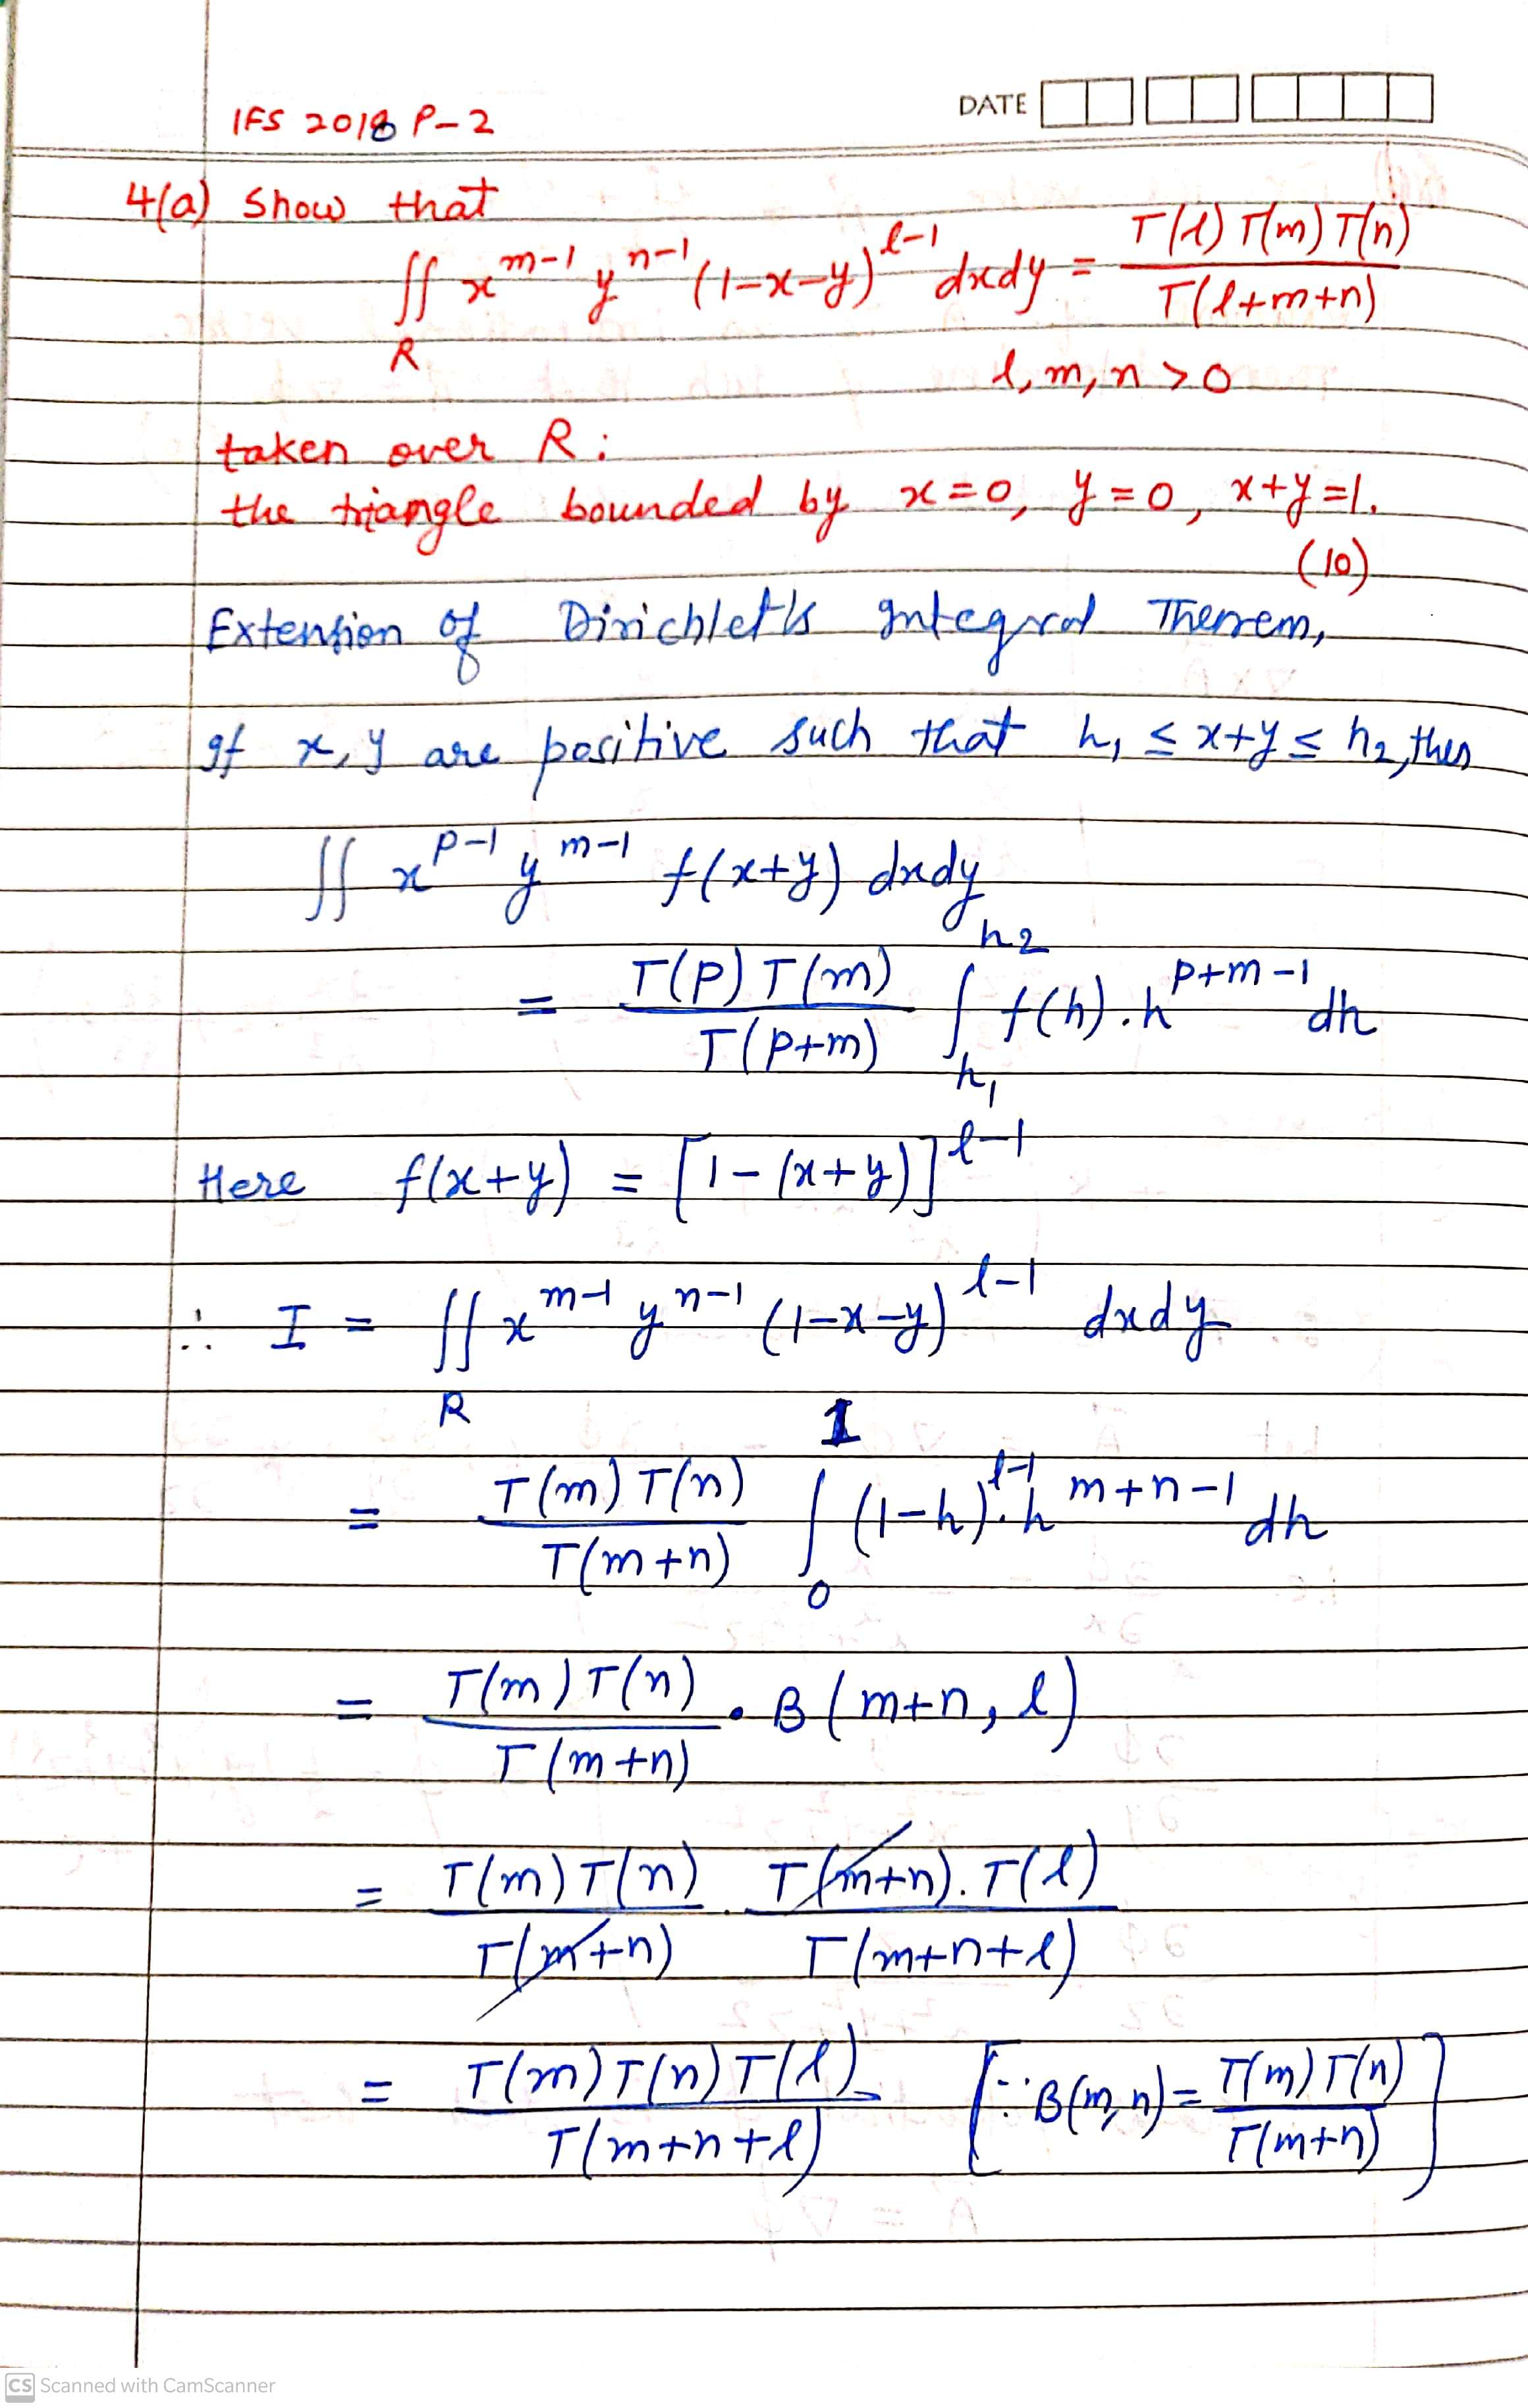 DATE
IFS 2018 P-2
4(a) Show that
∬_R x^{m-1} y^{n-1} (1-x-y)^{l-1} dxdy = Γ(l) Γ(m) Γ(n) / Γ(l+m+n)
l, m, n > 0
taken over R:
the triangle bounded by x=0, y=0, x+y=1.
(10)
Extension of Dirichlet's Integral Theorem,
If x, y are positive such that h₁ ≤ x+y ≤ h₂, then
∬ x^{p-1} y^{m-1} f(x+y) dxdy
= Γ(p) Γ(m) / Γ(p+m) ∫_{h₁}^{h₂} f(h) . h^{p+m-1} dh
Here f(x+y) = [1-(x+y)]^{l-1}
∴ I = ∬_R x^{m-1} y^{n-1} (1-x-y)^{l-1} dxdy
= Γ(m) Γ(n) / Γ(m+n) ∫_0^1 (1-h)^{l-1} . h^{m+n-1} dh
= Γ(m) Γ(n) / Γ(m+n) . B(m+n, l)
= Γ(m) Γ(n) / Γ(m+n) . Γ(m+n) . Γ(l) / Γ(m+n+l)
= Γ(m) Γ(n) Γ(l) / Γ(m+n+l) [∵ B(m,n) = Γ(m) Γ(n) / Γ(m+n)]
CS Scanned with CamScanner